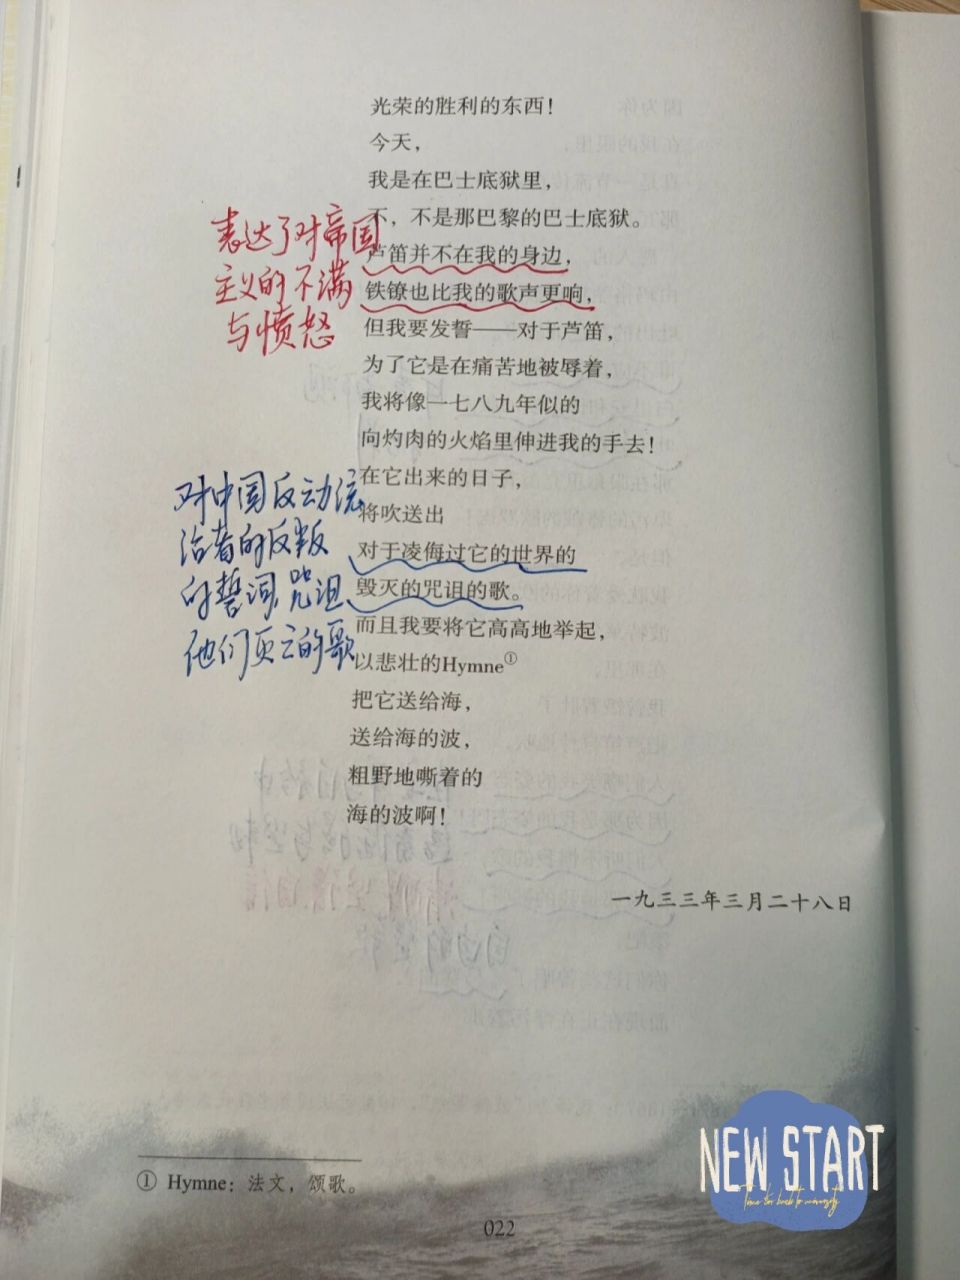 光荣的胜利的东西！
今天，
我是在巴士底狱里，
不，不是那巴黎的巴士底狱。
芦笛并不在我的身边，
铁镣也比我的歌声更响，
但我要发誓——对于芦笛，
为了它是在痛苦地被辱着，
我将像一七八九年似的
向灼肉的火焰里伸进我的手去！
在它出来的日子，
将吹送出
对于凌侮过它的世界的
毁灭的咒诅的歌。
而且我要将它高高地举起，
以悲壮的Hymne①
把它送给海，
送给海的波，
粗野地嘶着的
海的波啊！
一九三三年三月二十八日
表达了对帝国
主义的不满
与愤怒
对中国反动统
治者的反叛
的誓词,咒诅
他们灭亡的歌
① Hymne：法文，颂歌。
022
NEW START